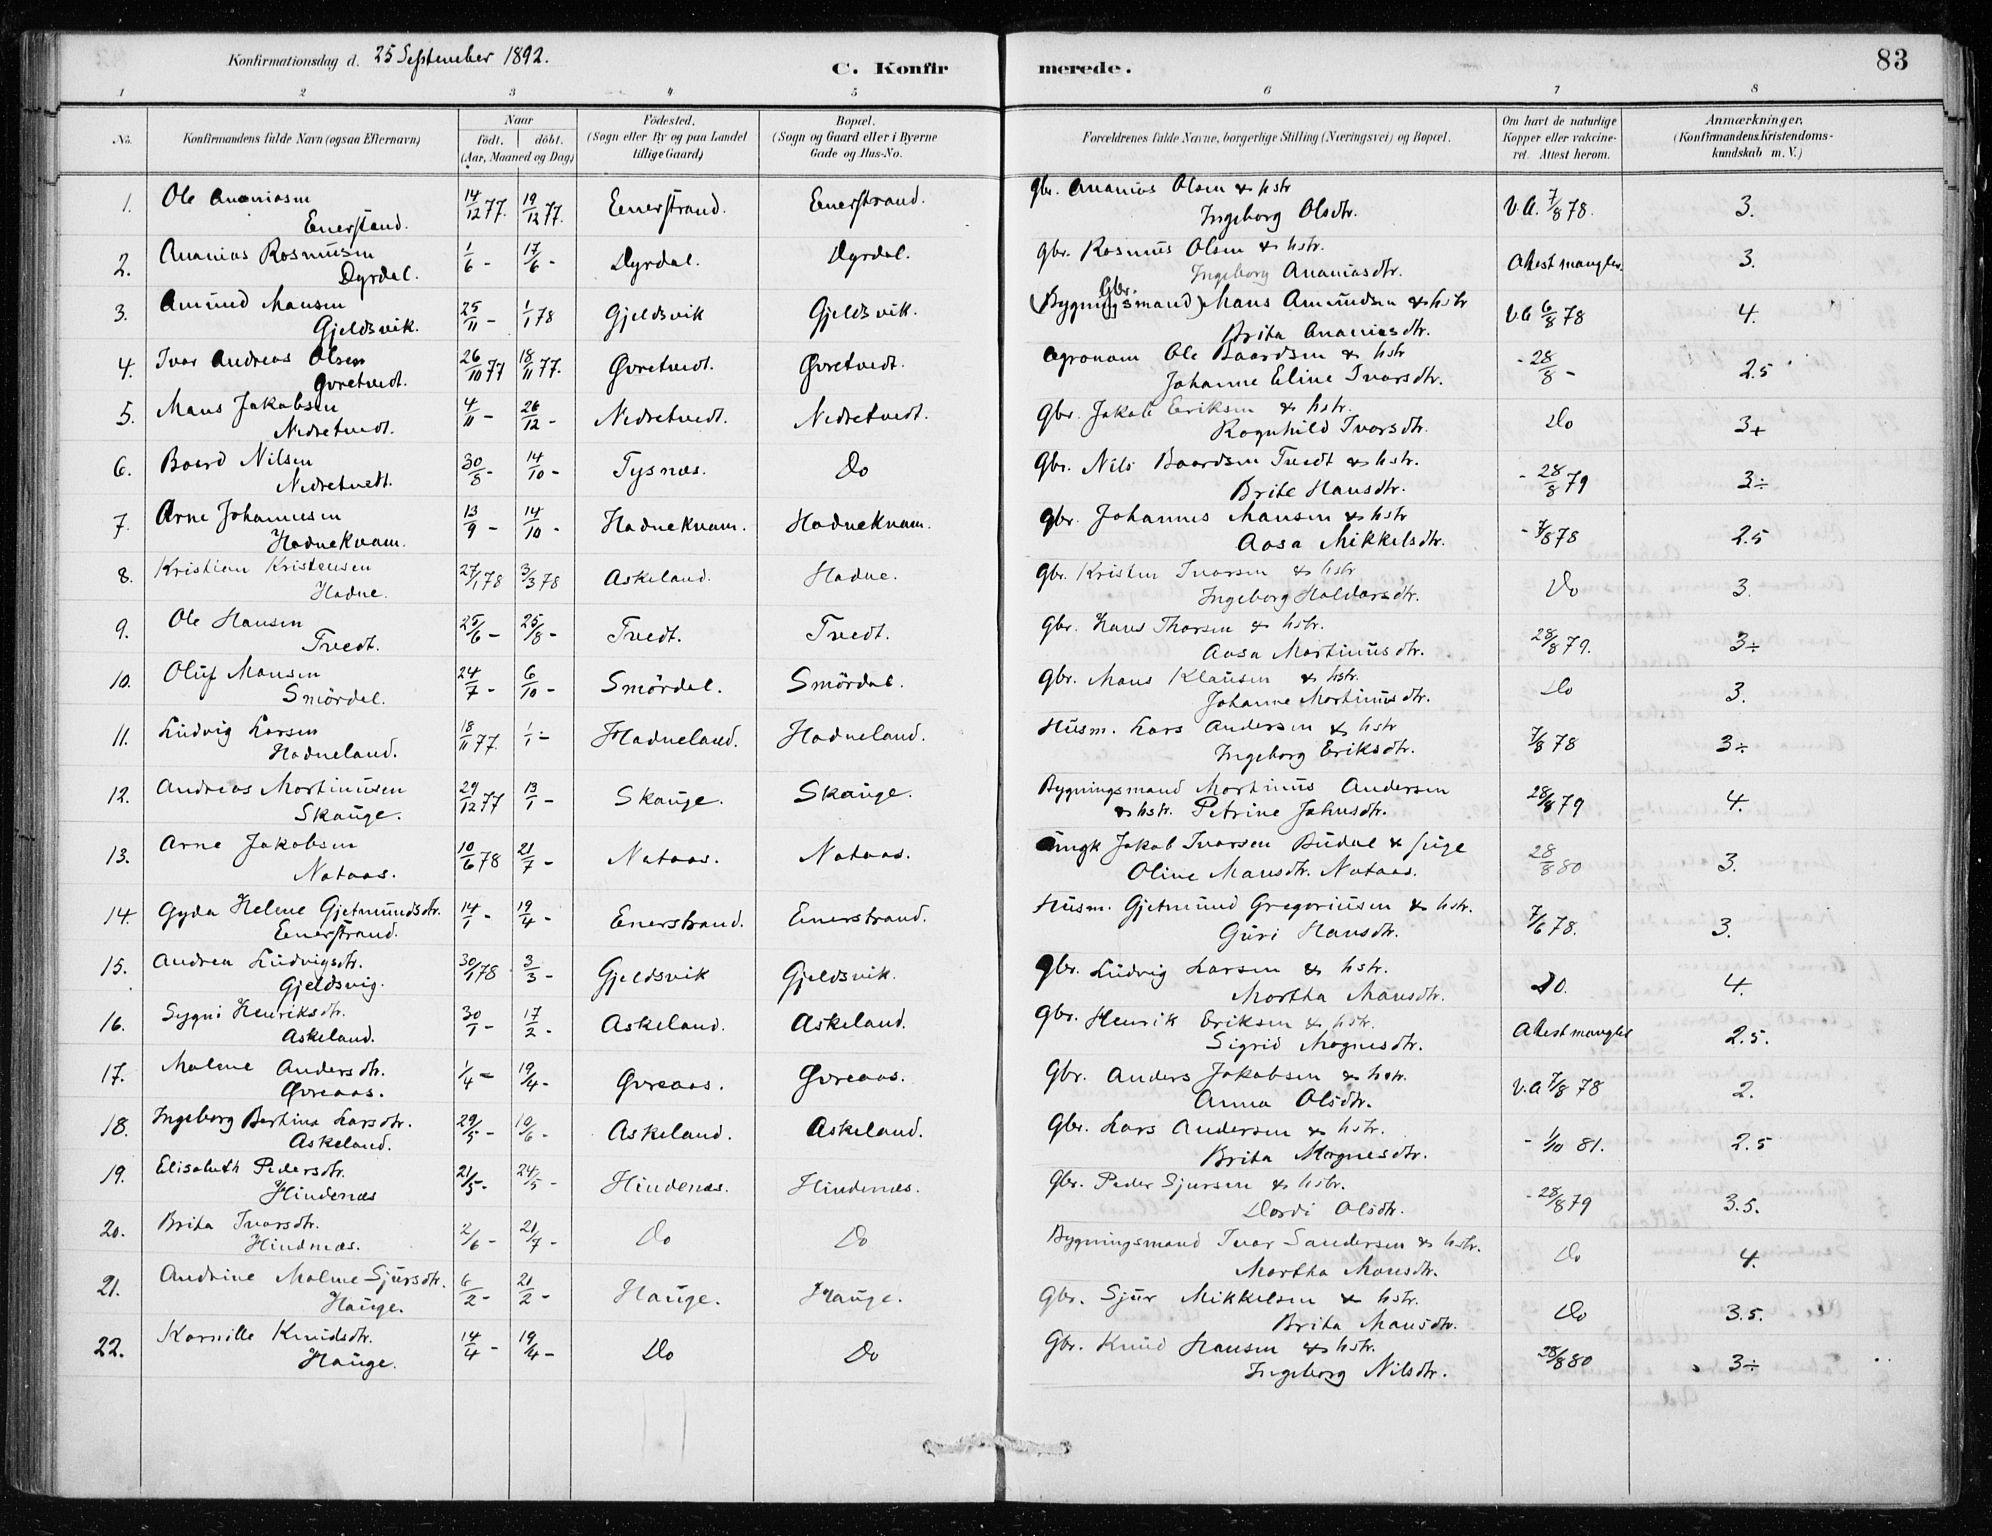 Konfirmationsdag d. 25 September 1892.
C. Konfirmerede.
83
1 2 3 4 5 6 7 8
No.
Konfirmandens fulde Navn (ogsaa Efternavn)
Naar
födt. döbt.
(Aar, Maaned og Dag)
Födested.
(Sogn eller By og paa Landet
tillige Gaard)
Bopæl.
(Sogn og Gaard eller i Byerne
Gade og Hus-No.
Forældrenes fulde Navne, borgerlige Stilling (Næringsvei) og Bopæl.
Om havt de naturlige
Kopper eller vakcine-
ret. Attest herom.
Anmærkninger.
(Konfirmandens Kristendoms-
kundskab m. V.)
1. Ole Ananiasen 14/12 77. 19/12 77. Enerstrand. Enerstrand. Gbr. Ananias Olsen & hstr V.A. 7/8 78. 3.
Enerstand. Ingeborg Olsdtr.
2. Ananias Rasmussen 1/6 - 17/6 - Dyrdal. Dyrdal. Gbr. Rasmus Olsen & hstr. Attest mangler. 3.
Dyrdal. Ingeborg Ananiasdtr.
3. Amund Mansen 25/11 - 1/1 78 Gjeldsvik Gjeldsvik. Gbr. (Bygningsmand) Mans Amundsen & hstr V.A 6/8 78 4.
Gjeldsvik. Brita Ananiasdtr.
4. Ivar Andreas Olsen 26/10 77 18/11 77. Øvretvedt. Øvretvedt. Agronom Ole Baardsen & hstr - 28/8 - 2.5
Øvretvedt. Johanne Eline Ivarsdtr.
5. Mans Jakobsen 4/11 - 26/12 - Nedretvedt. Nedretvedt. Gbr. Jakob Eriksen & hstr. Do 3+
Nedretvedt. Ragnhild Ivarsdtr.
6. Baard Nilsen 30/8 - 14/10 - Tysnæs. Do Gbr. Nils Baardsen Tvedt & hstr. - 28/8 79 3÷
Nedretvedt. Brite Hansdtr.
7. Arne Johannesen 13/9 - 14/10 - Hadnekvam. Hadnekvam. Gbr. Johannes Mansen & hstr - 7/8 78 2.5
Hadnekvam. Aasa Mikkelsdtr.
8. Kristian Kristensen 27/1 78 3/3 78 Askeland. Hadne. Gbr. Kristen Ivarsen & hstr Do 3.
Hadne. Ingeborg Haldorsdtr.
9. Ole Hansen 25/6 - 25/8 - Tvedt. Tvedt. Gbr. Hans Thorsen & hstr. 28/8 79. 3÷
Tvedt. Aasa Martinusdtr.
10. Oluf Mansen 24/7 - 6/10 - Smördal. Smördal. Gbr. Mans Klausen & hstr. Do 3.
Smördal. Johanne Martinusdtr.
11. Ludvig Larsen 18/11 77. 1/1 - Hadneland. Hadneland. Husm. Lars Andersen & hstr 7/8 78 3÷
Hadneland. Ingeborg Eriksdtr.
12. Andreas Martinusen 29/12 77 13/1 - Skauge. Skauge. Bygningsmand Martinus Andersen 28/8 79 4.
Skauge. & hstr. Petrine Johnsdtr.
13. Arne Jakobsen 10/6 78 21/7 - Nataas. Nataas. Ungk Jakob Ivarsen Budal & pige 28/8 80 3.
Nataas. Oline Mansdtr. Nataas.
14. Gyda Helene Gjetmundsdtr. 14/1 - 19/4 - Enerstrand. Enerstrand. Husm. Gjetmund Gregoriusen & hstr. 7/6 78. 3.
Enerstrand. Guri Hansdtr.
15. Andrea Ludvigsdtr. 30/1 78 3/3 - Gjeldsvik Gjeldsvik. Gbr. Ludvig Larsen & hstr. Do. 4.
Gjeldsvig. Martha Mansdtr.
16. Sygni Henriksdtr. 30/1 - 17/2 - Askeland. Askeland. Gbr. Henrik Eriksen & hstr. Attest mangler 2.5.
Askeland. Sigrid Magnesdtr.
17. Malene Andersdtr. 1/4 - 19/4 - Øvreaas. Øvreaas. Gbr. Anders Jakobsen & hstr. V.A 7/8 78 2.
Øvreaas. Anna Olsdtr.
18. Ingeborg Bertina Larsdtr. 29/5 - 19/6 - Askeland. Askeland. Gbr. Lars Andersen & hstr. - 1/10 81. 2.5
Askeland. Brita Magnesdtr.
19. Elisabeth Pedersdtr. 21/5 - 24/5 - Hindenæs. Hindenæs. Gbr. Peder Sjursen & hstr. - 28/8 79 3.5.
Hindenæs Dordi Olsdtr.
20. Brita Ivarsdtr. 2/6 - 21/7 - Do Do Bygningsmand Ivar Sandersen & hstr. Do 4.
Hindnæs. Martha Mansdtr.
21. Andrine Malene Sjursdtr. 6/2 - 21/2 - Hauge. Hauge. Gbr. Sjur Mikkelsen & hstr. Do 3.5.
Hauge. Brita Mansdtr.
22. Kornille Knudsdtr. 14/4 - 19/4 - Do Do Gbr. Knud Hansen & hstr. 28/8 80 3÷
Hauge. Ingeborg Nilsdtr.